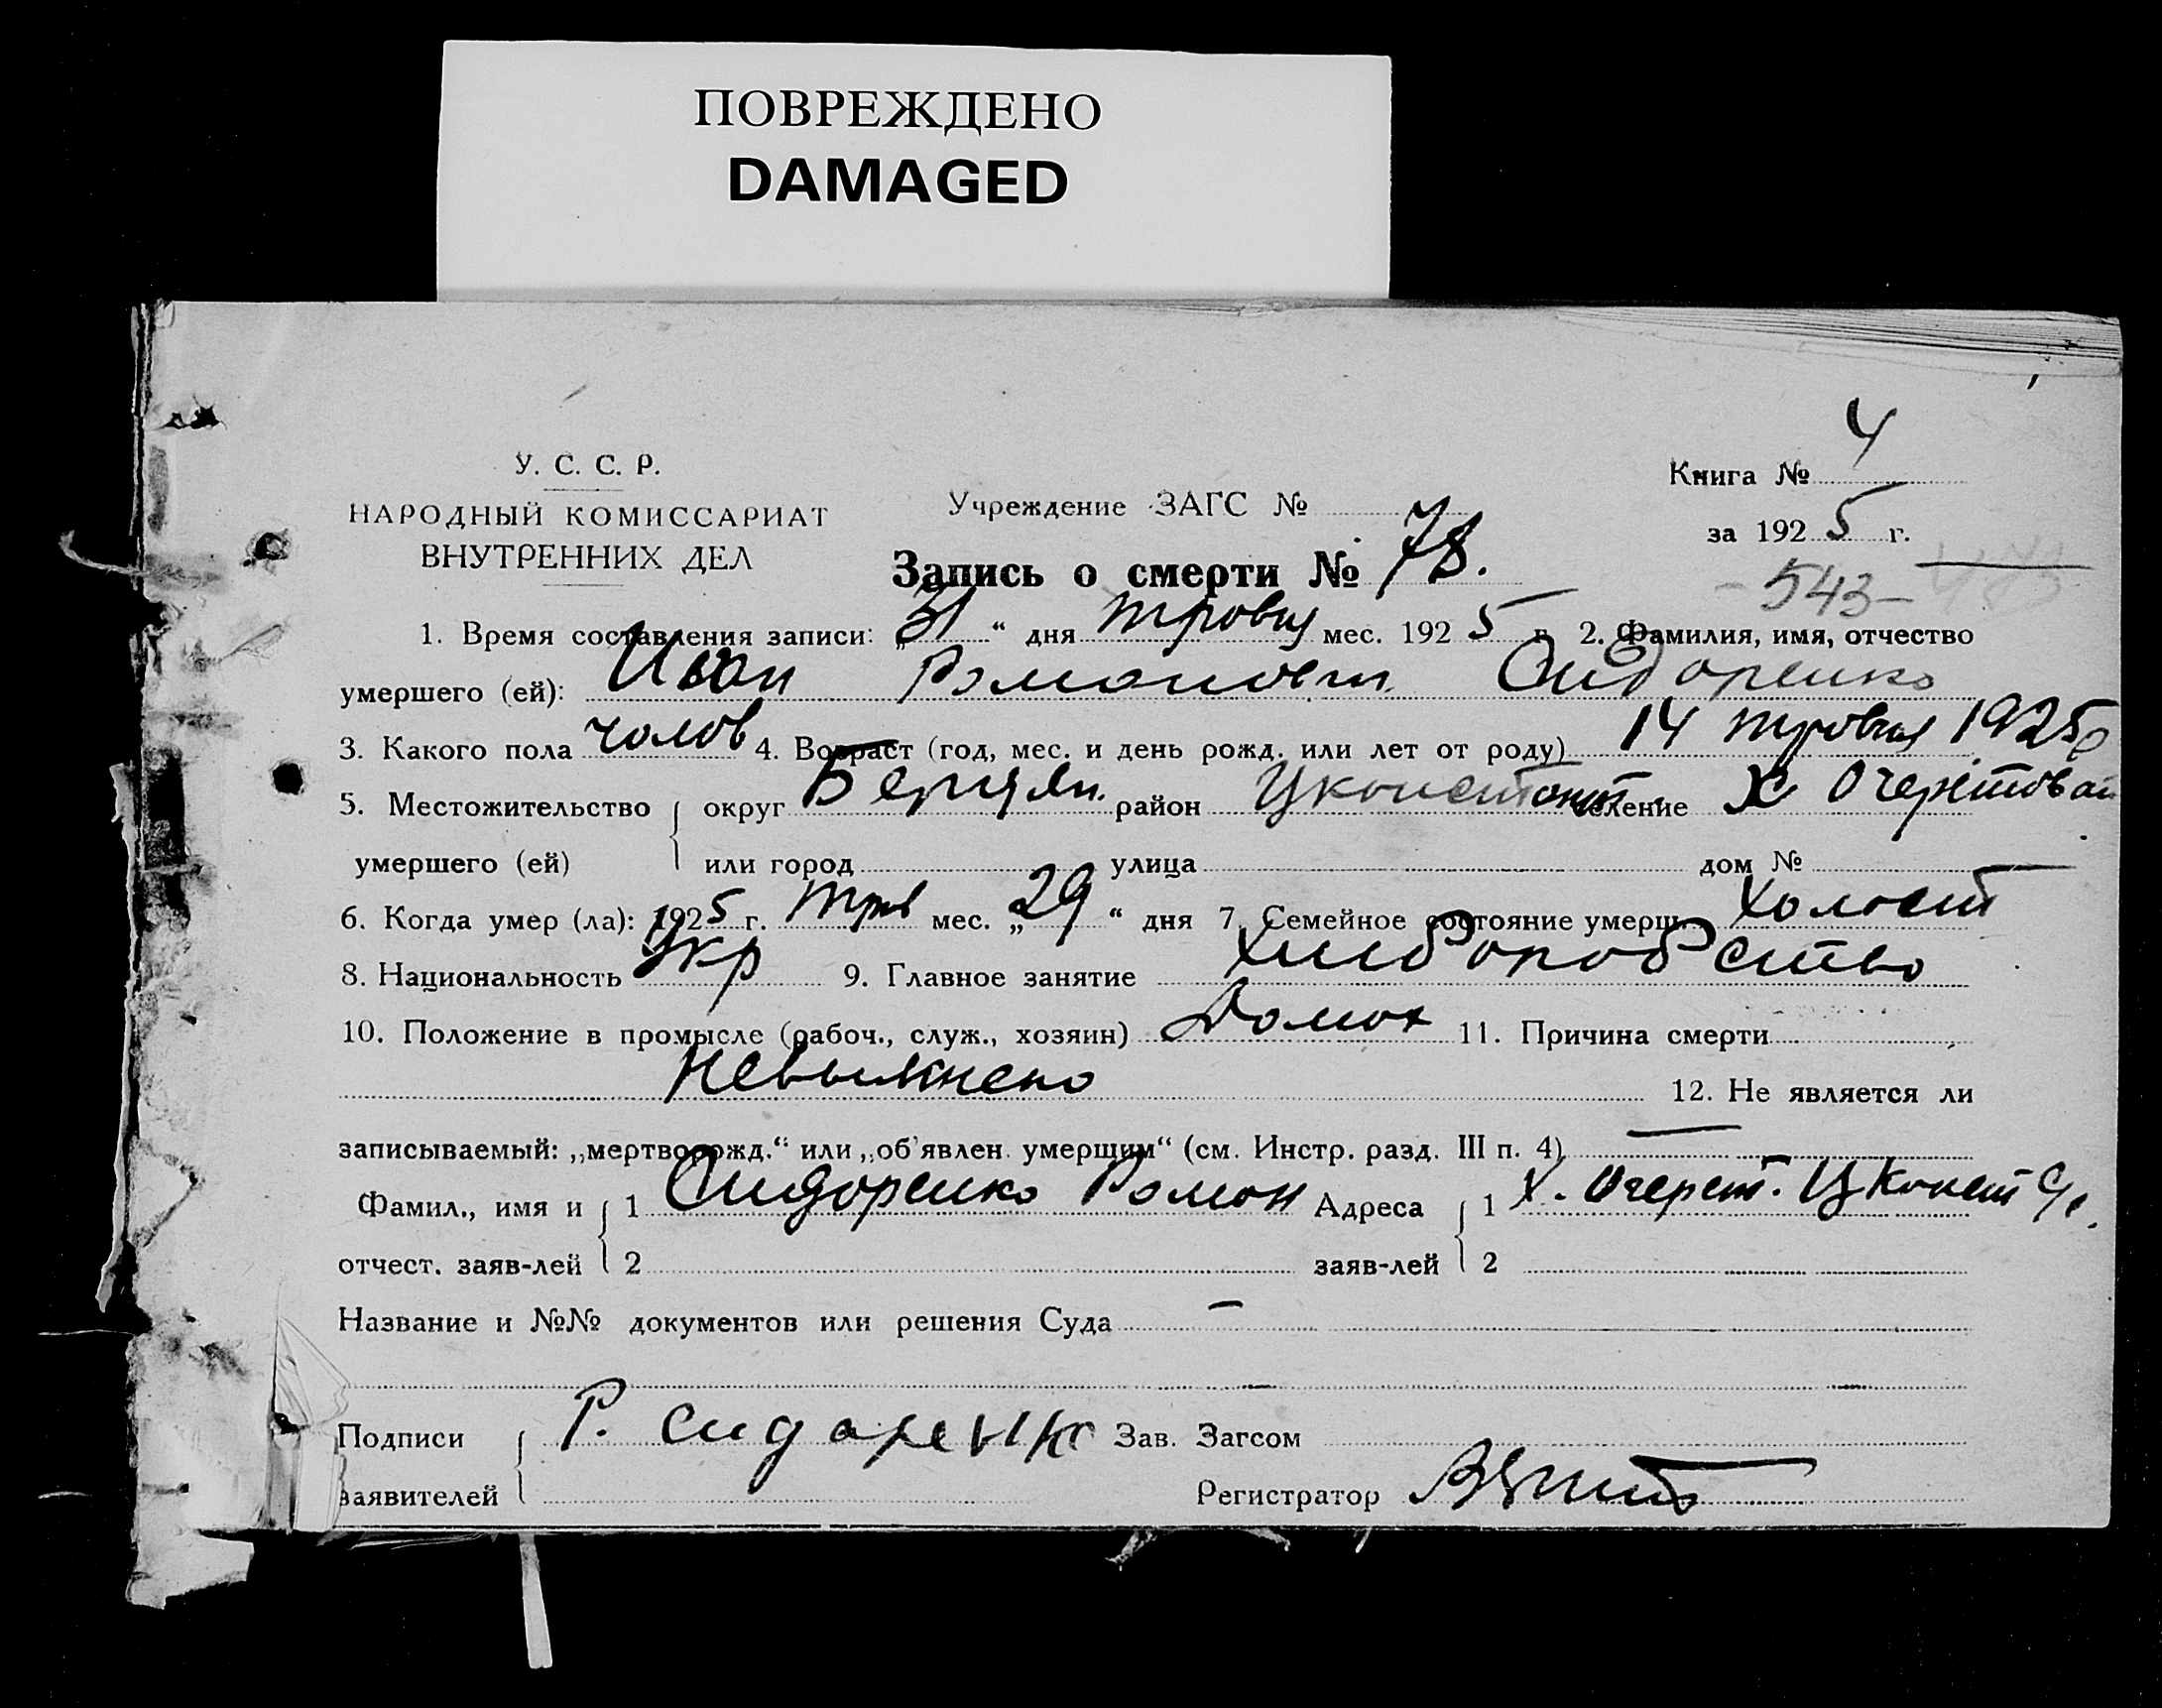 ПОВРЕЖДЕНО
DAMAGED
У. С. С. Р.
НАРОДНЫЙ КОМИССАРИАТ
ВНУТРЕННИХ ДЕЛ
Учреждение ЗАГС №
Книга № 4
за 1925 г.
Запись о смерти № 78.
- 543 -
1. Время составления записи: „31“ дня травня мес. 1925 г. 2. Фамилия, имя, отчество
умершего (ей): Иван Романович Сидоренко
3. Какого пола чолов 4. Возраст (год, мес. и день рожд. или лет от роду) 14 травня 1925р
5. Местожительство округ Бердян. район Цконстант селение Х Очеретоват
умершего (ей) или город улица дом №
6. Когда умер (ла): 1925 г. трав мес. „29“ дня 7. Семейное состояние умерш. холост
8. Национальность Укр 9. Главное занятие хлиборобство
10. Положение в промысле (рабоч., служ., хозяин) Домох 11. Причина смерти
12. Не является ли
записываемый: „мертворожд.“ или „об'явлен. умершим“ (см. Инстр. разд. III п. 4)
Фамил., имя и 1 Сидоренко Роман Адреса 1 Х. Очерет. Цконст с/с.
отчест. заяв-лей 2 заяв-лей 2
Название и №№ документов или решения Суда -
Подписи Р. Сидоренко Зав. Загсом
заявителей Регистратор